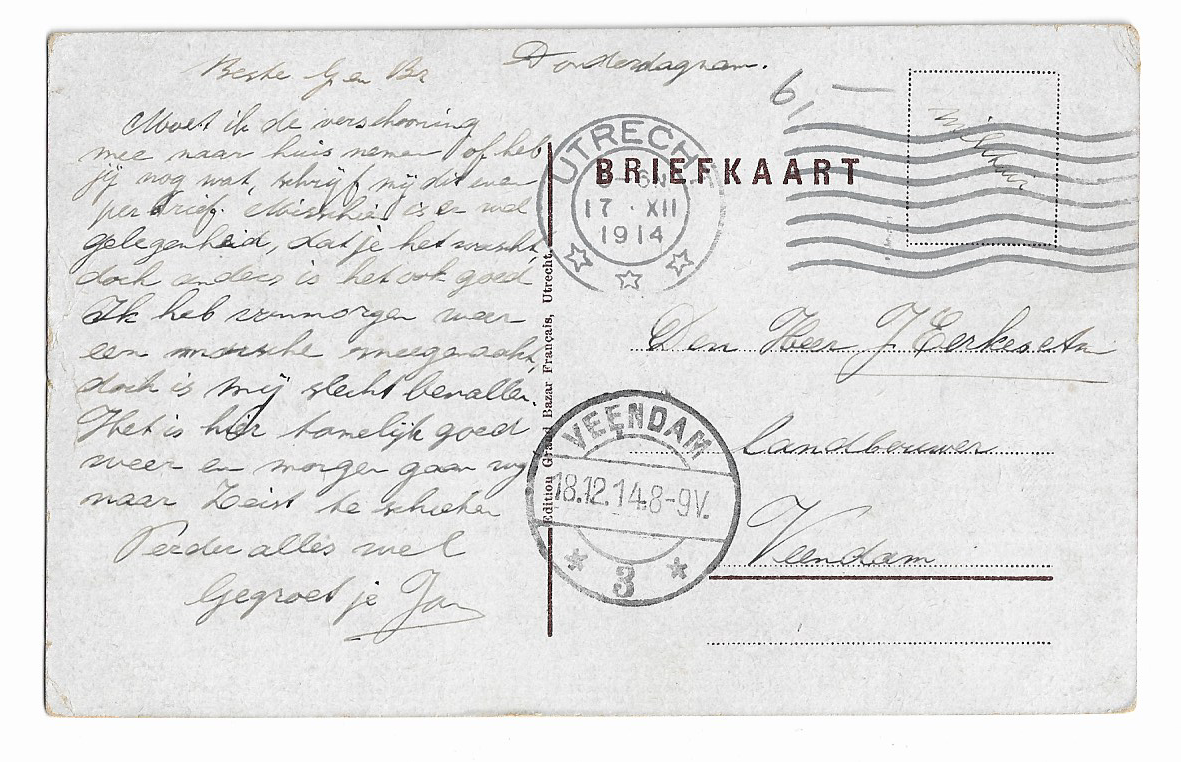 Donderdagnam.
Beste G en Br
Moet ik de verschooning
mee naar huis nemen of heb
jij nog wat, schrijf mij dit even
per brief. Misschien is er wel
gelegenheid, dat je het
doch anders is het ook goed
Ik heb vanmorgen weer
een marsche meegemaakt,
doch is mij slecht bevallen.
Het is hier tamelijk goed
weer en morgen gaan wij
naar Zeist te schieten
Verder alles wel
Gegroet je Jan
6,—
militair
UTRECHT
17 · XII
1914
BRIEFKAART
Edition Grand Bazar Français, Utrecht.
Den Heer J Eerkes
landbouwer
Veendam
VEENDAM
18.12.14.8-9V.
3